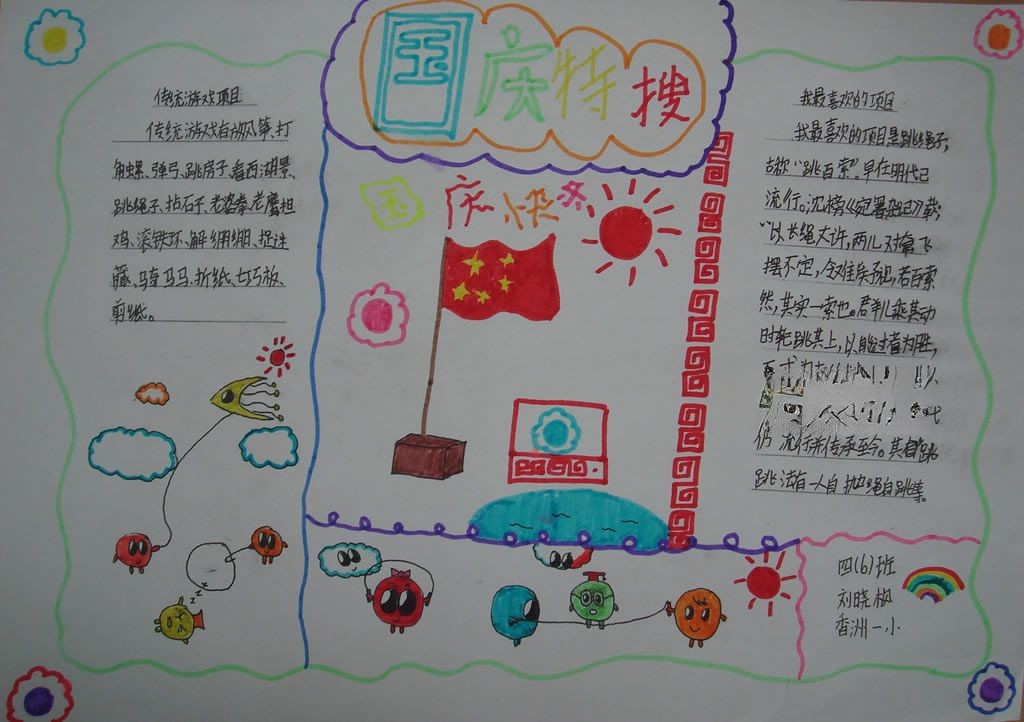 国庆特搜
国庆快乐
传统游戏项目
传统游戏有放风筝、打
陀螺、弹弓、跳房子、看西湖景、
跳绳子、拈石子、老鹰担
鸡、滚铁环、解绷绷、捉迷
藏、骑马马、折纸、七巧板、
剪纸。
我最喜欢的项目
我最喜欢的项目是跳绳子,
古称“跳百索”。早在明代已
流行。沈榜《宛署杂记》载:
“以长绳丈许,两儿对拿,飞
摆不定,令难凝视,若百索
然,其实一索也。群儿乘其动
时轮跳其上,以能过者为胜,
仍流行并传承至今。其
跳法有一人自抛绳自跳等。
四(6)班
刘晓枫
香洲一小
zzz